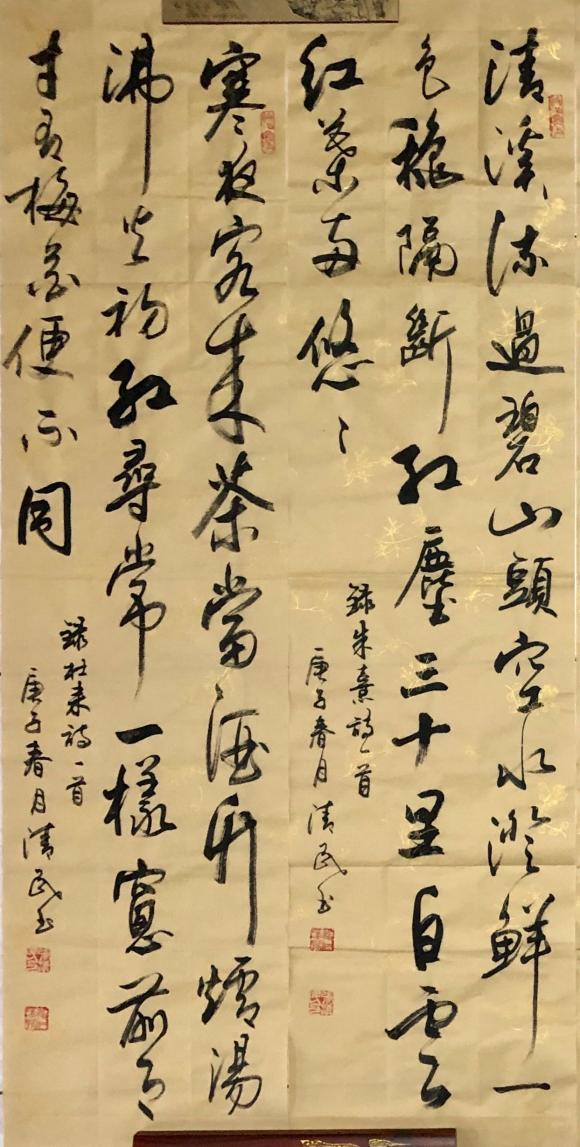 清溪流過碧山頭空水澄鮮一
色穐隔斷红塵三十里白雲
红葉两悠々
錄朱熹詩一首
庚子春月清民书
寒夜客来茶當酒竹爐湯
沸火初红尋常一樣窓前月
才有梅花便不同
錄杜耒詩一首
庚子春月清民书